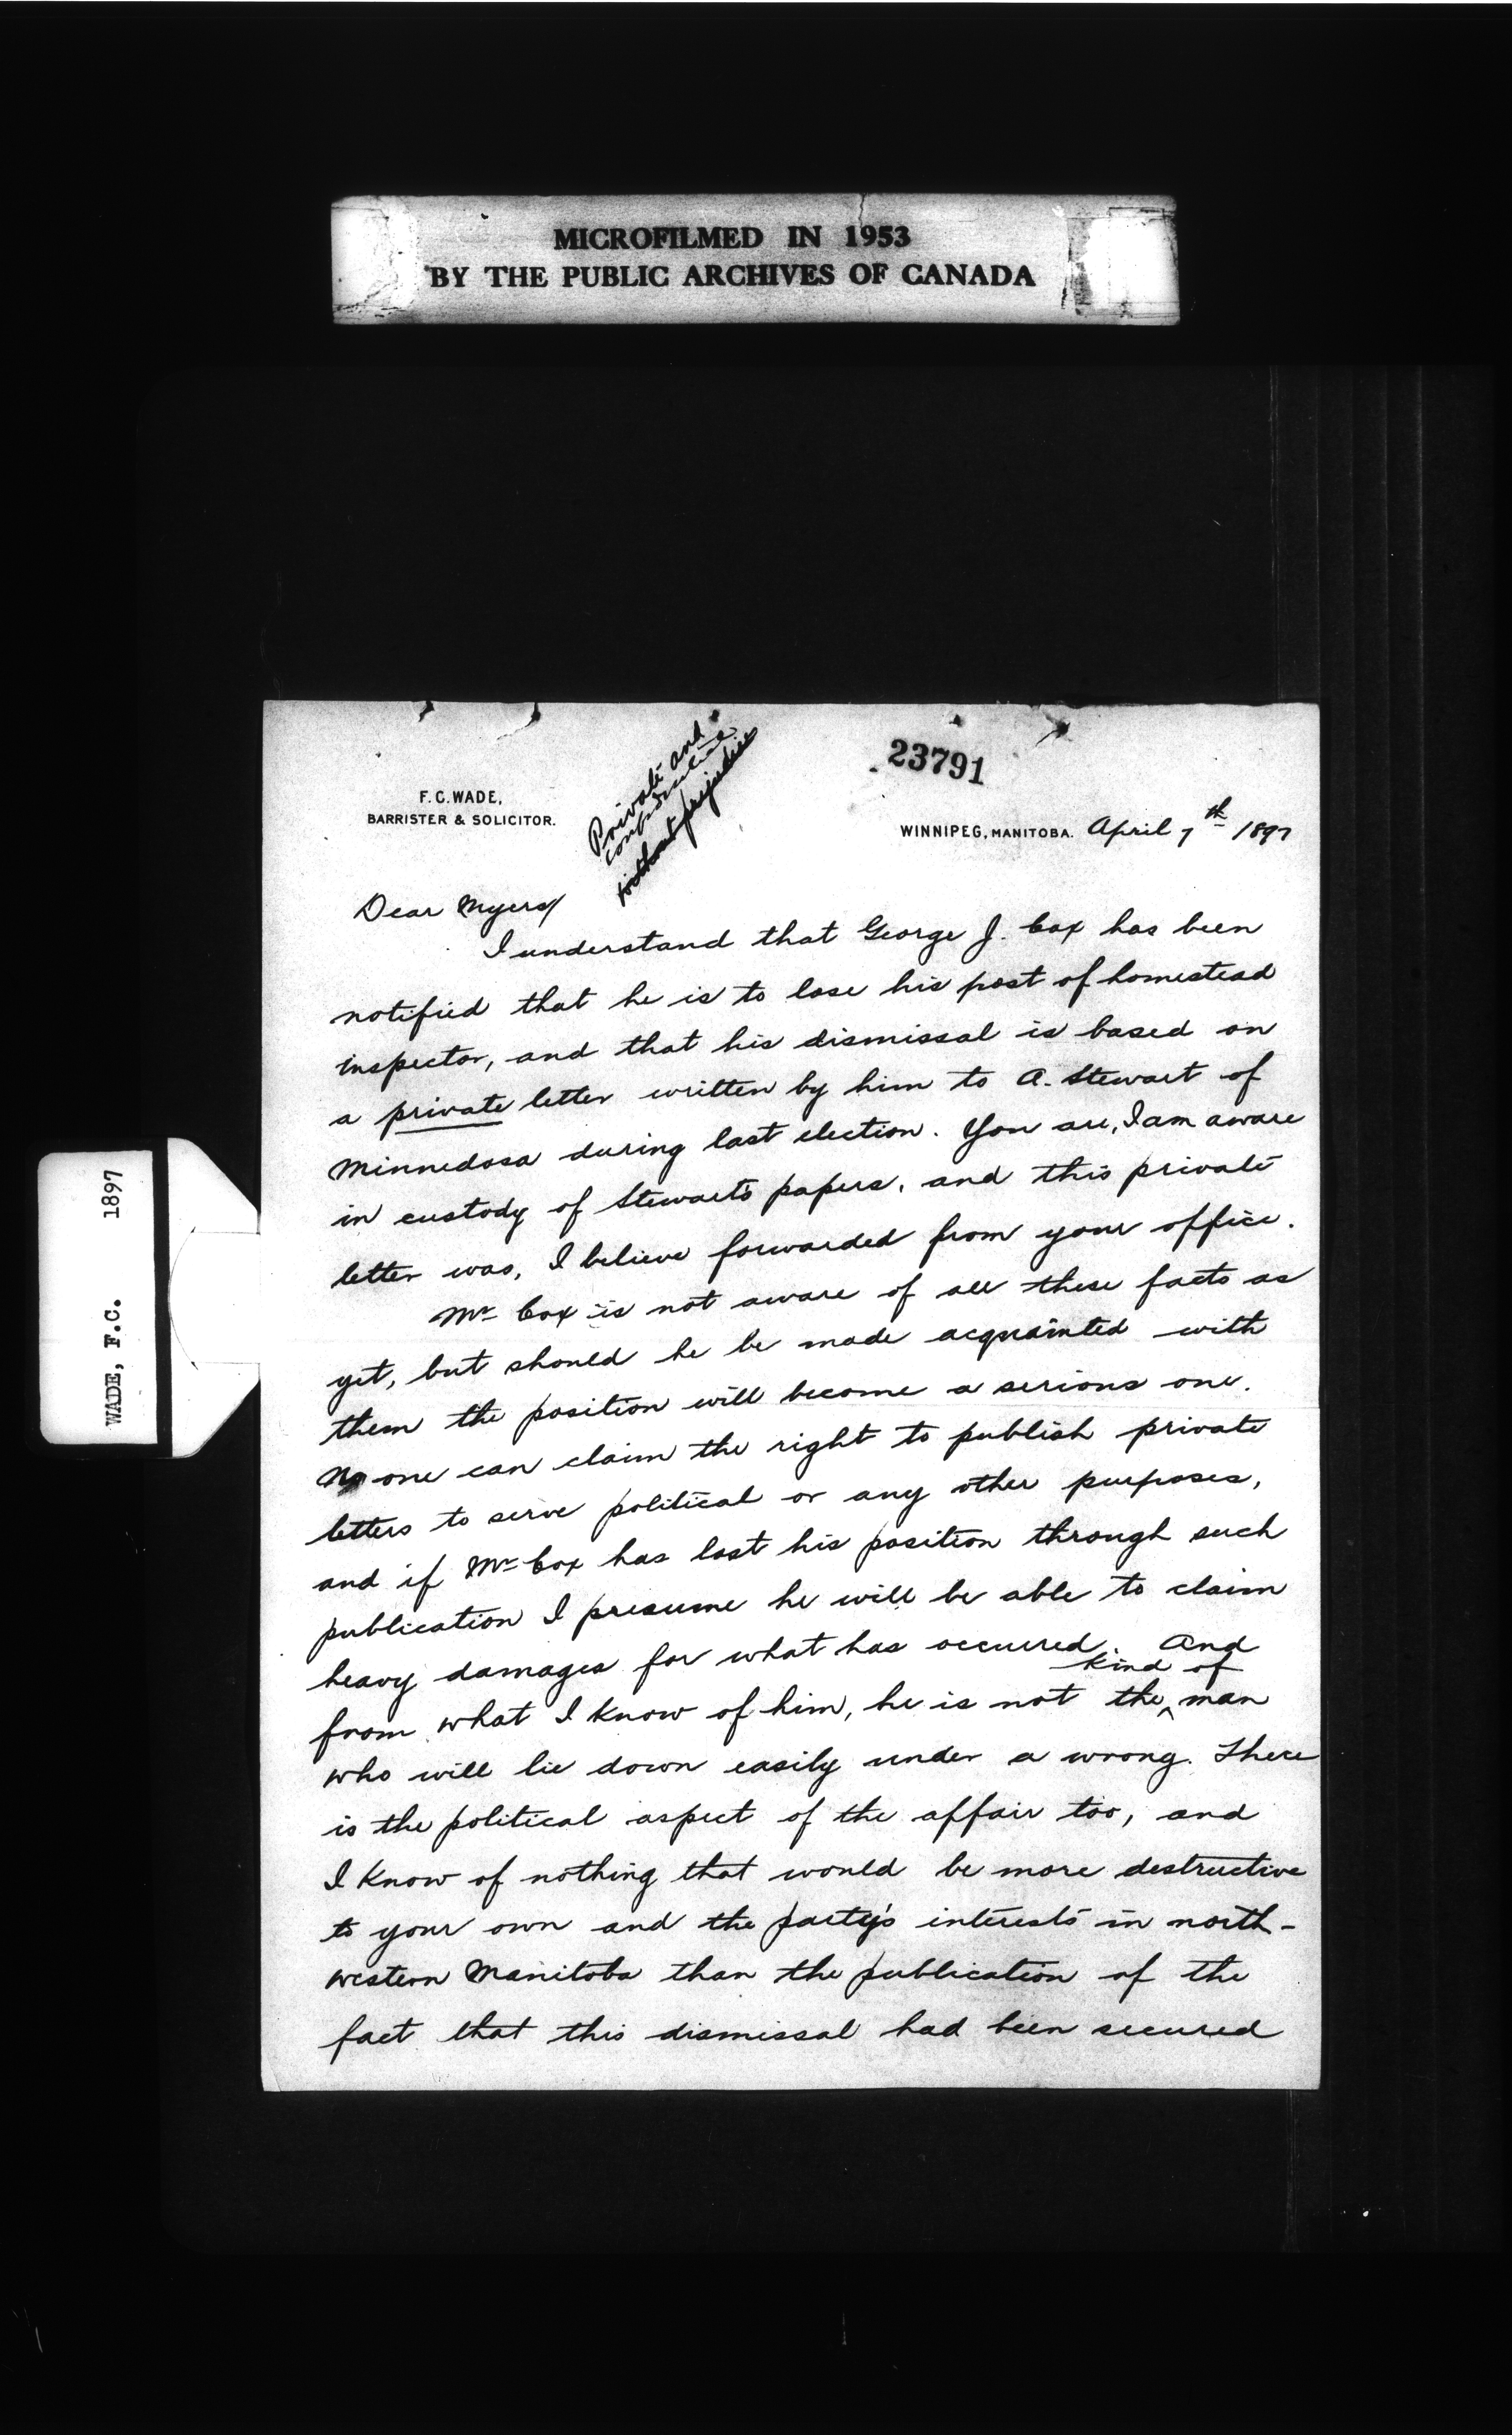 MICROFILMED IN 1953
BY THE PUBLIC ARCHIVES OF CANADA
WADE, F.C. 1897
23791
F.C. WADE,
BARRISTER & SOLICITOR.
Private and
confidential
without prejudice
WINNIPEG, MANITOBA. April 7th 1897
Dear Myers/
I understand that George J. Cox has been
notified that he is to lose his post of homestead
inspector, and that his dismissal is based on
a private letter written by him to A. Stewart of
Minnedosa during last election. You are, I am aware
in custody of Stewart's papers, and this private
letter was, I believe forwarded from your office.
Mr Cox is not aware of all these facts as
yet, but should he be made acquainted with
them the position will become a serious one.
No one can claim the right to publish private
letters to serve political or any other purposes,
and if Mr Cox has lost his position through such
publication I presume he will be able to claim
heavy damages for what has occurred. And
kind of
from what I know of him, he is not the ^ man
who will lie down easily under a wrong. There
is the political aspect of the affair too, and
I know of nothing that would be more destructive
to your own and the party's interests in north-
western Manitoba than the publication of the
fact that this dismissal had been secured